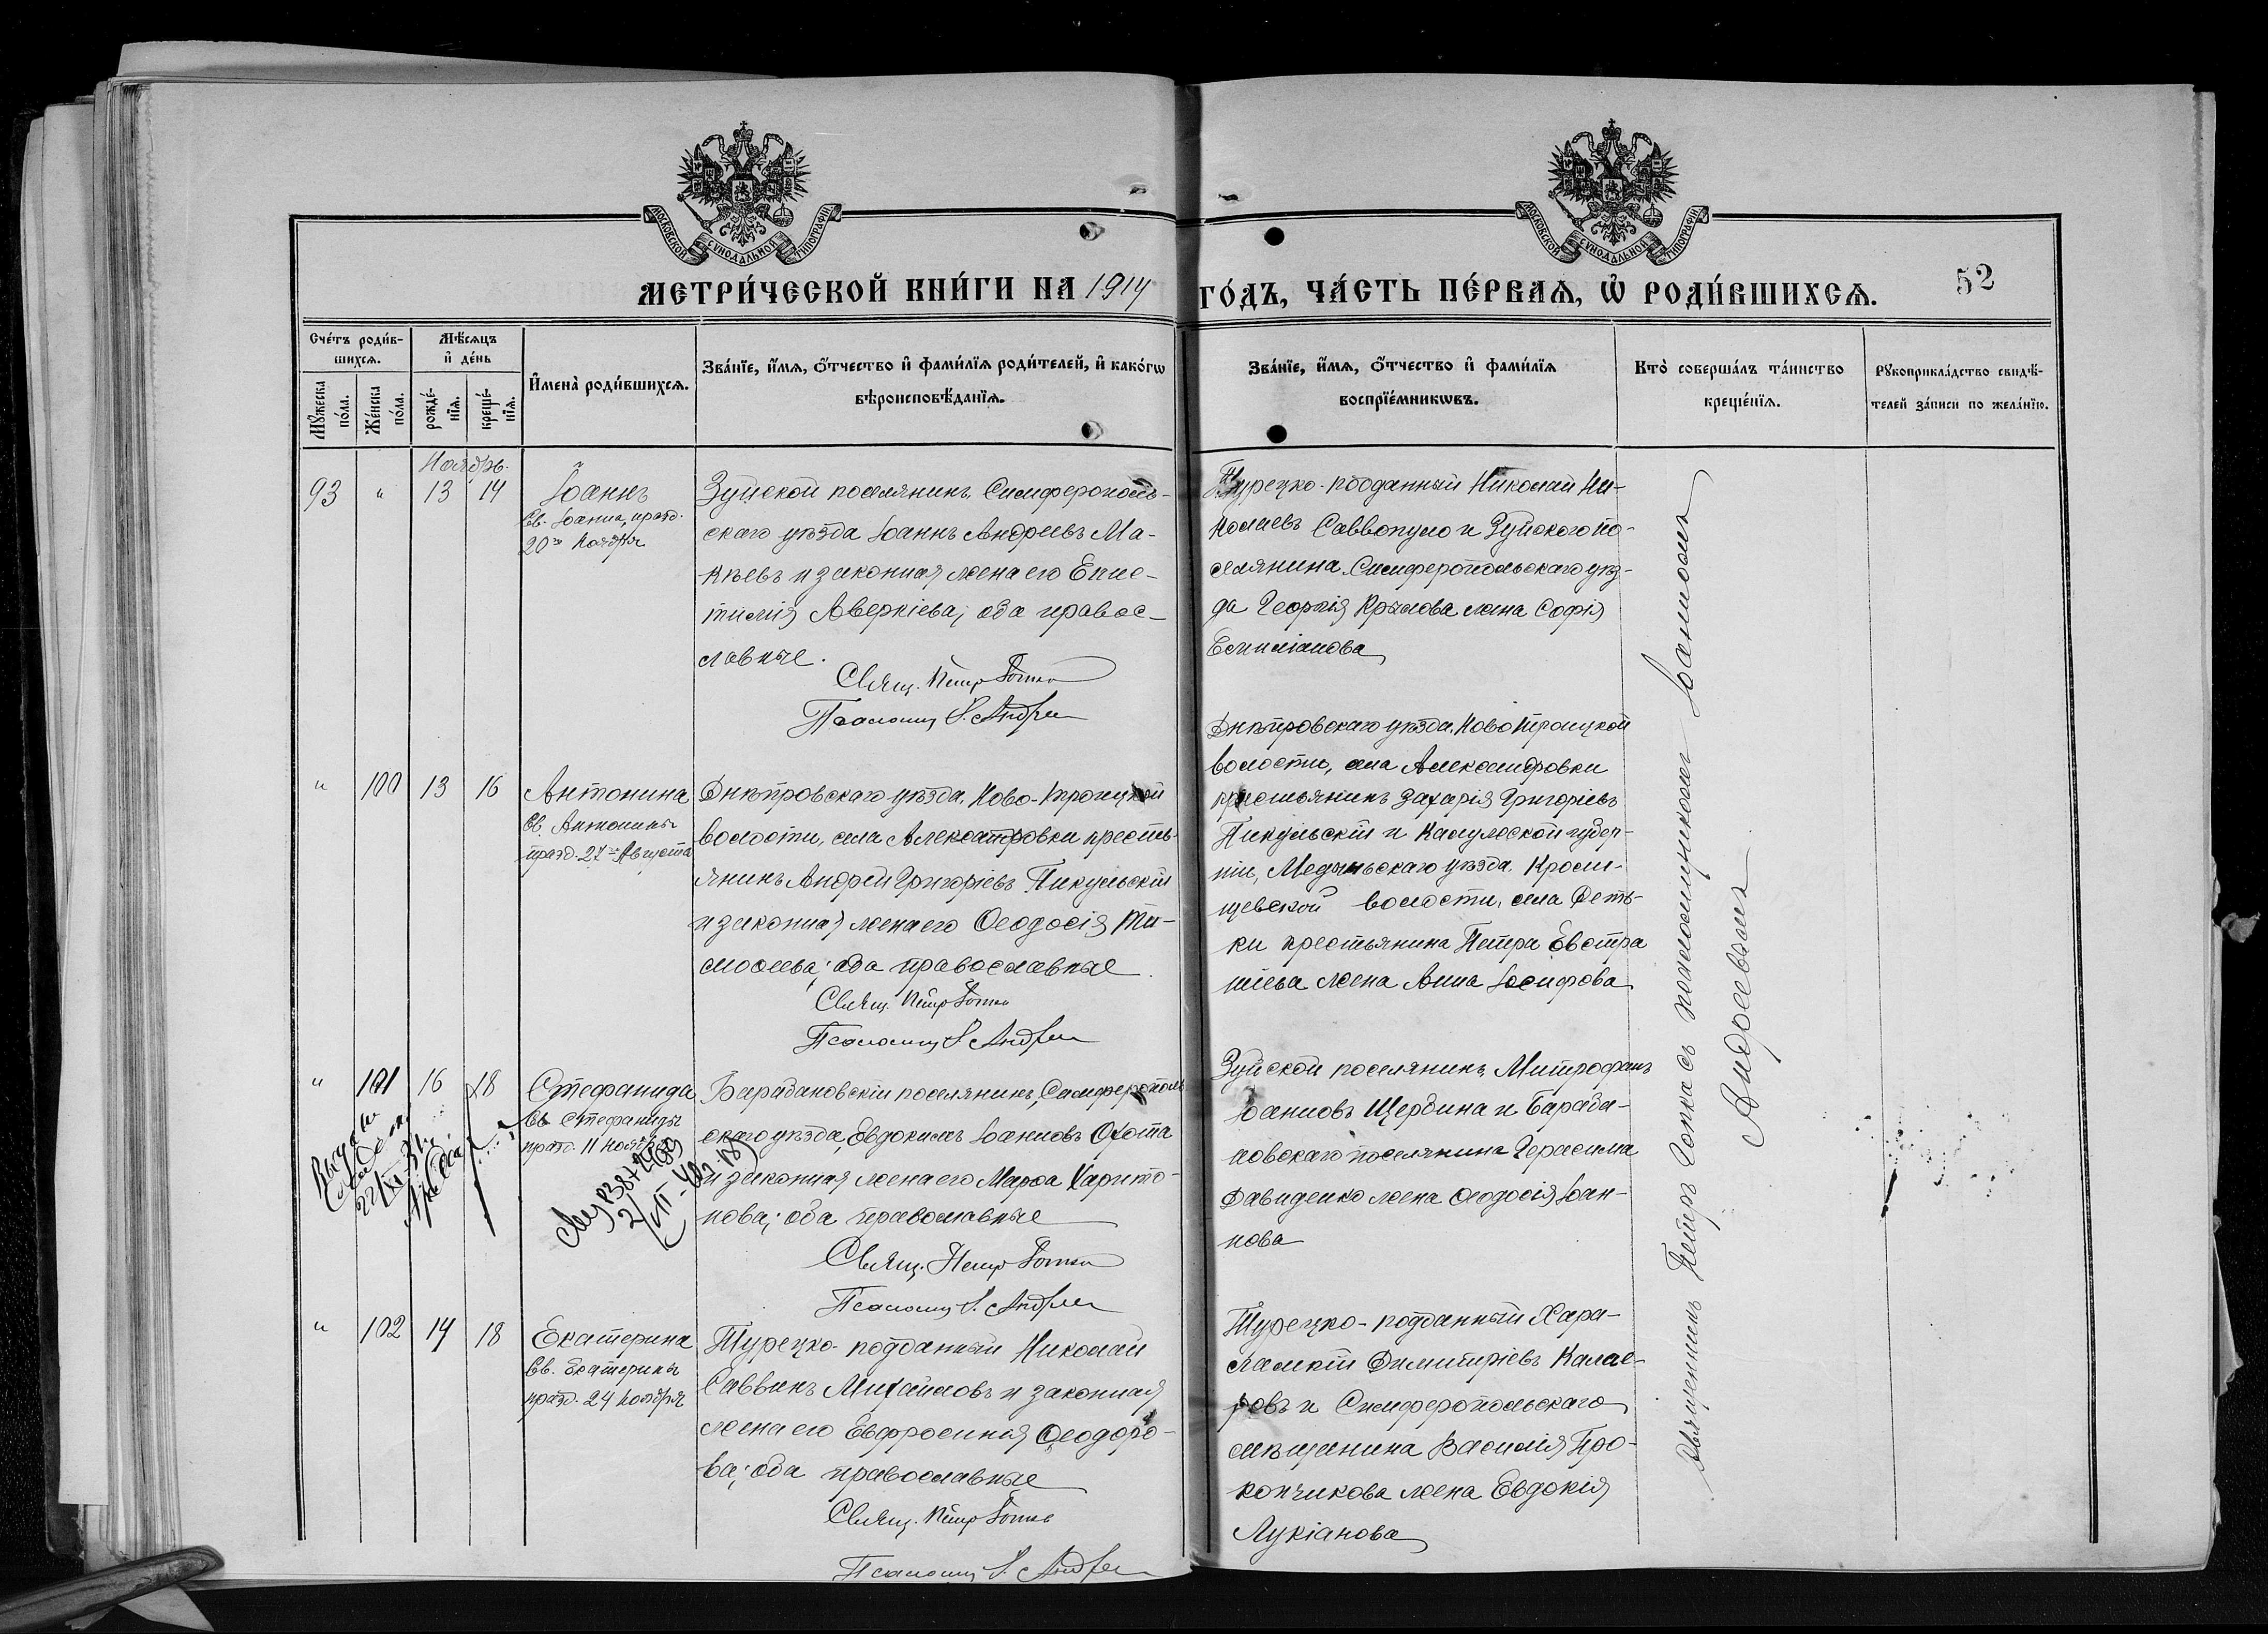 МОСКОВСКОЙ СѴНОДАЛЬНОЙ ТИПОГРАФІИ.
МОСКОВСКОЙ СѴНОДАЛЬНОЙ ТИПОГРАФІИ.
МЕТРИ́ЧЕСКОЙ КНИ́ГИ НА 1914
ГО́ДЪ, ЧА́СТЬ ПЕ́РВАѦ, Ѡ҆ РОДИ́ВШИХСѦ.
52
Сче́тъ роди́в-
шихсѧ.
Мꙋ́жеска
по́ла.
Же́нска
по́ла.
Мѣ́сѧцъ
и҆ де́нь
рожде́-
нїѧ.
креще́-
нїѧ.
И҆мена̀ роди́вшихсѧ.
Зва́нїе, и҆́мѧ, ѻ҆́тчество и҆ фами́лїѧ роди́телей, и҆ како́гѡ
вѣроисповѣ́данїѧ.
Зва́нїе, и҆́мѧ, ѻ҆́тчество и҆ фами́лїѧ
воспрїе́мникѡвъ.
Кто̀ соверша́лъ та́инство
креще́нїѧ.
Рꙋкоприкла́дство свидѣ́-
телей за́писи по жела́нїю.
Ноябрь.
93 " 13 14
Іоаннъ
Св. Іоанна, празд.
20го Ноября
Зуйской поселянинъ Симферополь-
скаго уѣзда Іоаннъ Андреевъ Ма-
кѣевъ и законная жена его Епис-
тимія Аверкіева; оба правос-
лавные.
Свящ. Петр Гопка
Псаломщ І. Андрее
Турецко-подданный Николай Ни-
колаевъ Саввопуло и Зуйскаго по-
селянина Симферопольскаго уѣз-
да Георгія Крылова жена Софія
Есиміанова
" 100 13 16
Антонина
Св. Антонины
празд. 27го Августа
Днѣпровскаго уѣзда, Ново-Троицкой
волости, села Александровки кресть-
янинъ Андрей Григоріевъ Пикульскій
и законная жена его Ѳеодосія Ти-
моѳеева; оба православные.
Свящ. Петр Гопка
Псаломщ І. Андрее
Днѣпровскаго уѣзда, Ново Троицкой
волости, села Александровки
крестьянинъ Захарія Григоріевъ
Пикульскій и Калужской губер-
ніи, Медынскаго уѣзда, Кроми-
щевской волости, села Деть-
ки крестьянина Петра Евстра
тіева жена Анна Іосифова
" 101 16 18
Стефанида
Св Стефаниды
празд. 11 Ноября
Барабановскій поселянинъ, Симферополь
скаго уѣзда, Евдокимъ Іоанновъ Охота
и законная жена его Марѳа Харито-
нова; оба православные
Свящ. Петр Гопка
Псаломщ І. Андрее
Зуйской поселянинъ Митрофанъ
Іоанновъ Щербина и Бараба-
новскаго поселянина Герасима
Давиденко жена Ѳеодосія Іоан-
нова
" 102 14 18
Екатерина
Св. Екатерины
празд. 24 Ноября
Турецко-подданный Николай
Саввинъ Михайловъ и законная
жена его Евфросинія Ѳеодоро-
ва; оба православные
Свящ. Петр Гопка
Псаломщ І. Андрее
Турецко-подданный Хара-
лампій Димитріевъ Калае-
ровъ и Симферопольскаго
мѣщанина Василія Про-
копчикова жена Евдокія
Лукіанова
Священникъ Петръ Гопка съ псаломщикомъ Іоанномъ
Андреевымъ